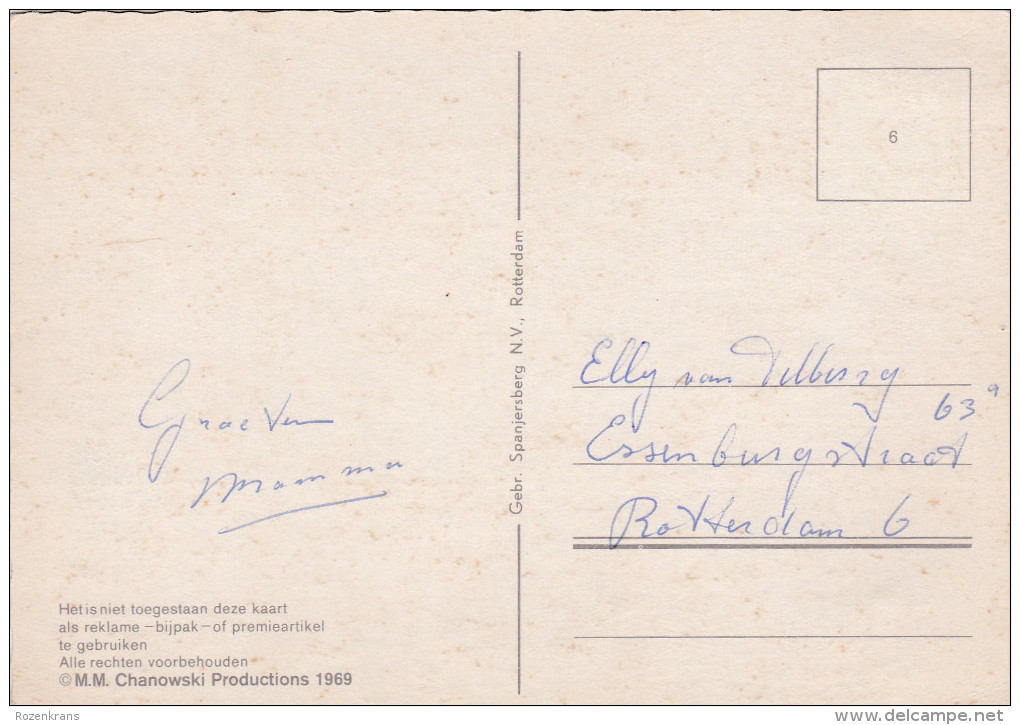 6
Groeten
Mamma
Elly van Tilburg
63a
Essenburgstraat
Rotterdam 6
Gebr. Spanjersberg N.V., Rotterdam
Het is niet toegestaan deze kaart
als reklame –bijpak– of premieartikel
te gebruiken
Alle rechten voorbehouden
©M.M. Chanowski Productions 1969
Rozenkrans
www.delcampe.net